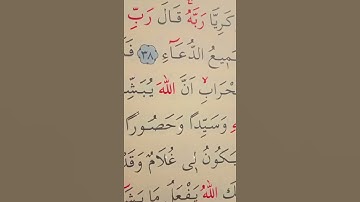 كَرِيَّا رَبَّهُ قَالَ رَبِّ
مَيعُ الدُّعَاءِ ﴿٣٨﴾ فَ
حْرَابِ اَنَّ اللّٰهَ يُبَشِّ
وَسَيِّداً وَحَصُوراً
يَكُونُ لٖى غُلَامٌ وَقَدْ
كَ اللّٰهُ يَفْعَلُ مَا يَشَ